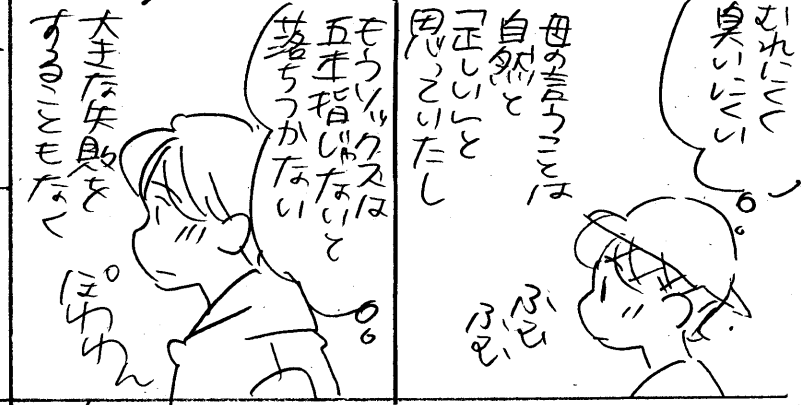 むれにくく
臭いにくい
母の言うことは
自然と
「正しい」と
思っていたし
ふむ
ふむ
もうソックスは
五本指じゃないと
落ちつかない
大きな失敗を
することもなく
ぽわわん